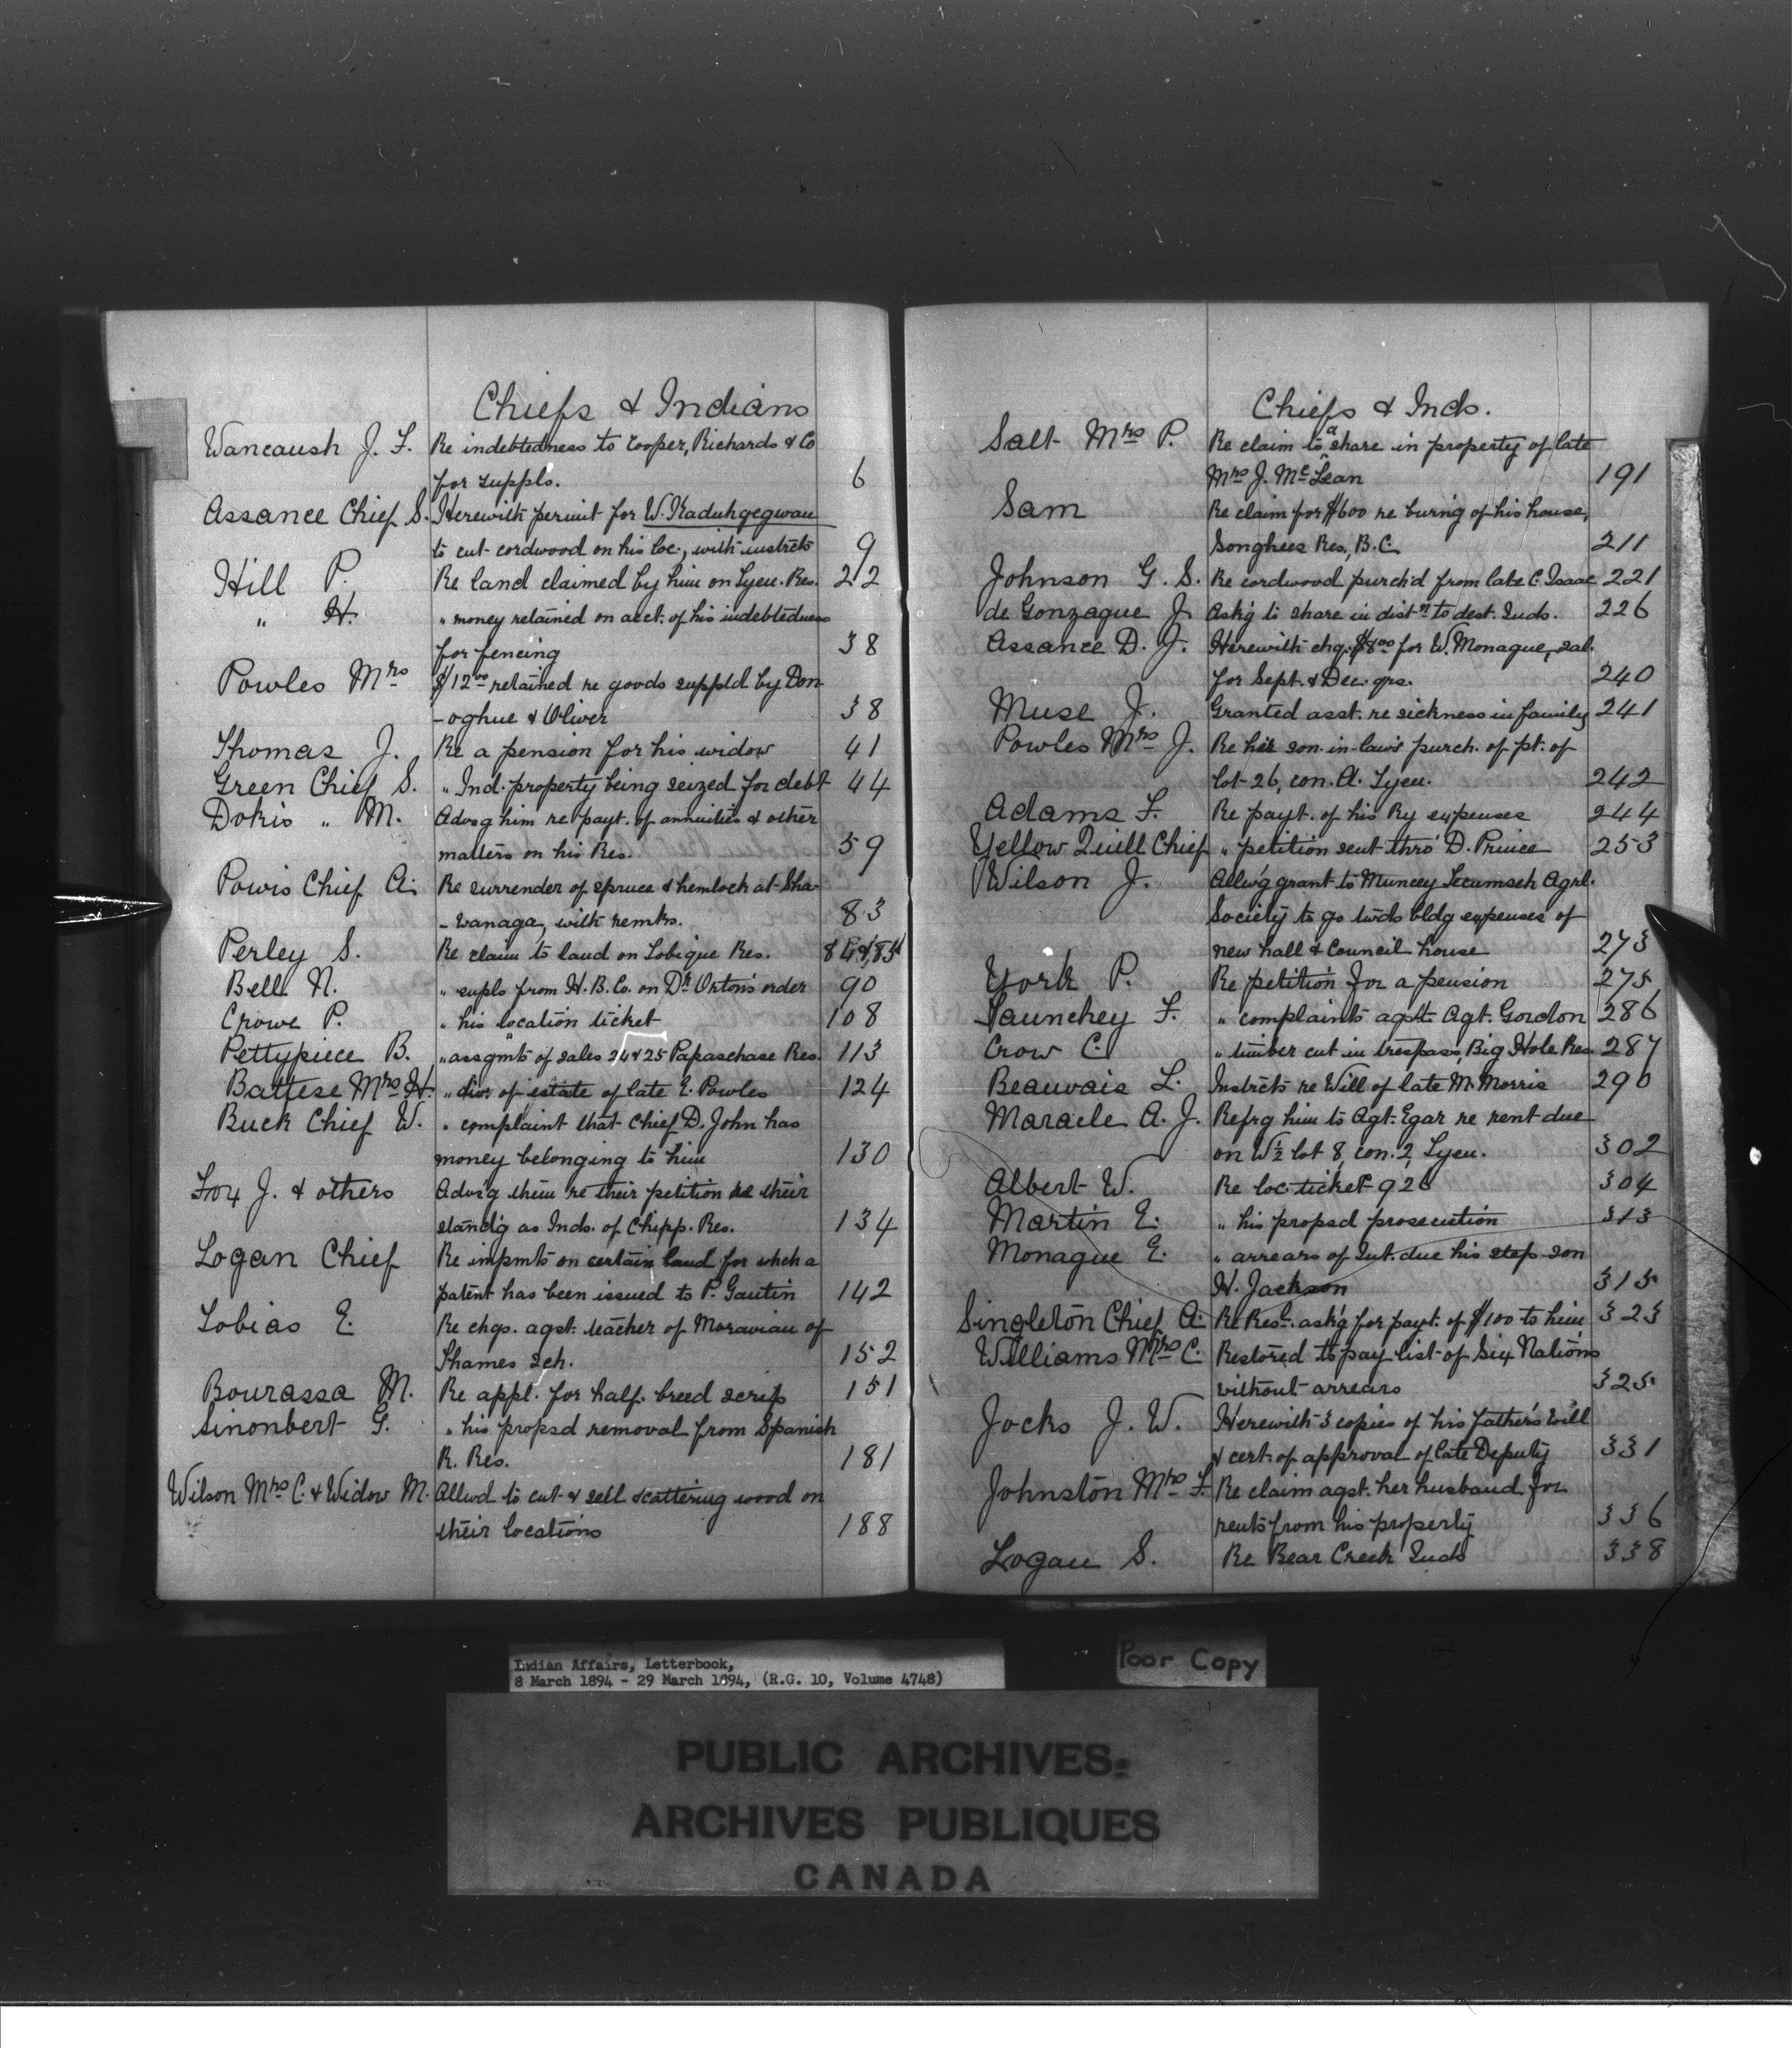 Chiefs & Indians
Wancaush J. F. Re indebtedness to Cooper, Richards & Co
for suppls. 6
Assance Chief S. Herewith permit for W. Kaduhgegwau
to cut cordwood on his loc., with instrcts 9
Hill P. Re land claimed by him on Tyen. Res. 22
" H. " money retained on acct. of his indebtedness
for fencing 38
Powles Mrs $12.00 retained re goods suppld by Don-
-oghue & Oliver 38
Thomas J. Re a pension for his widow 41
Green Chief S. " Ind. property being seized for debt 44
Dokis " M. Advsg him re payt. of annuities & other
matters on his Res. 59
Powis Chief A. Re surrender of spruce & hemlock at Sha-
-wanaga, with remks. 83
Perley S. Re claim to land on Tobique Res. 84 & 85
Bell N. " supls from H. B. Co. on Dr Orton's order 90
Crowe P. " his location ticket 108
Pettypiece B. " assgmts of sales 24 & 25 Papaschase Res. 113
Battese Mrs H. " div. of estate of late E. Powles 124
Buck Chief W. " complaint that Chief D. John has
money belonging to him 130
Fox J. & others Advs'g them re their petition re their
stand'g as Inds. of Chipp. Res. 134
Logan Chief Re impmts on certain land for which a
patent has been issued to P. Gautin 142
Tobias E. Re chgs. agst. teacher of Moravian of
Thames sch. 152
Bourassa M. Re appl. for half-breed scrip 151
Sinonbert G. " his propsd removal from Spanish
R. Res. 181
Wilson Mrs C. & Widow M. Allwd to cut & sell scattering wood on
their locations 188
Chiefs & Inds.
Salt Mrs P. Re claim to a share in property of late
Mrs J. McLean 191
Sam Re claim for $600 re burn'g of his house,
Songhees Res, B.C. 211
Johnson G. S. Re cordwood purch'd from late C. Isaac 221
de Gonzague J. Ask'g to share in distn to dest. Inds. 226
Assance D. J. Herewith chq. $8.00 for W. Monague, sal.
for Sept. & Dec. qrs. 240
Muse J. Granted asst. re sickness in family 241
Powles Mrs J. Re her son-in-law's purch. of pt. of
lot 26, con. A. Tyen. 242
Adams F. Re payt. of his Ry expenses 244
Yellow Quill Chief " petition sent thro' D. Prince 253
Wilson J. Allw'g grant to Muncey Tecumseh Agrl.
Society to go twds bldg expenses of
new hall & Council house 273
York P. Re petition for a pension 275
Taunchey F. " complaints agst. Agt. Gordon 286
Crow C. " timber cut in trespass, Big Hole Res 287
Beauvais L. Instrcts re Will of late M. Morris 290
Maracle A. J. Refrg him to Agt. Egar re rent due
on W½ lot 8, con. 2, Tyen. 302
Albert W. Re loc. ticket 926 304
Martin E. " his propsd prosecution 313
Monague E. " arrears of Int. due his step-son
H. Jackson 315
Singleton Chief A. Re Res. C. ask'g for payt. of $100 to him 323
Williams Mrs C. Restored to pay list of Six Nations
without arrears 325
Jocks J. W. Herewith 3 copies of his father's Will
& cert. of approval of late Deputy 331
Johnston Mrs F. Re claim agst. her husband for
rents from his property 336
Logan S. Re Bear Creek Inds 338
Indian Affairs, Letterbook,
8 March 1894 - 29 March 1894, (R.G. 10, Volume 4748)
Poor Copy
PUBLIC ARCHIVES
ARCHIVES PUBLIQUES
CANADA